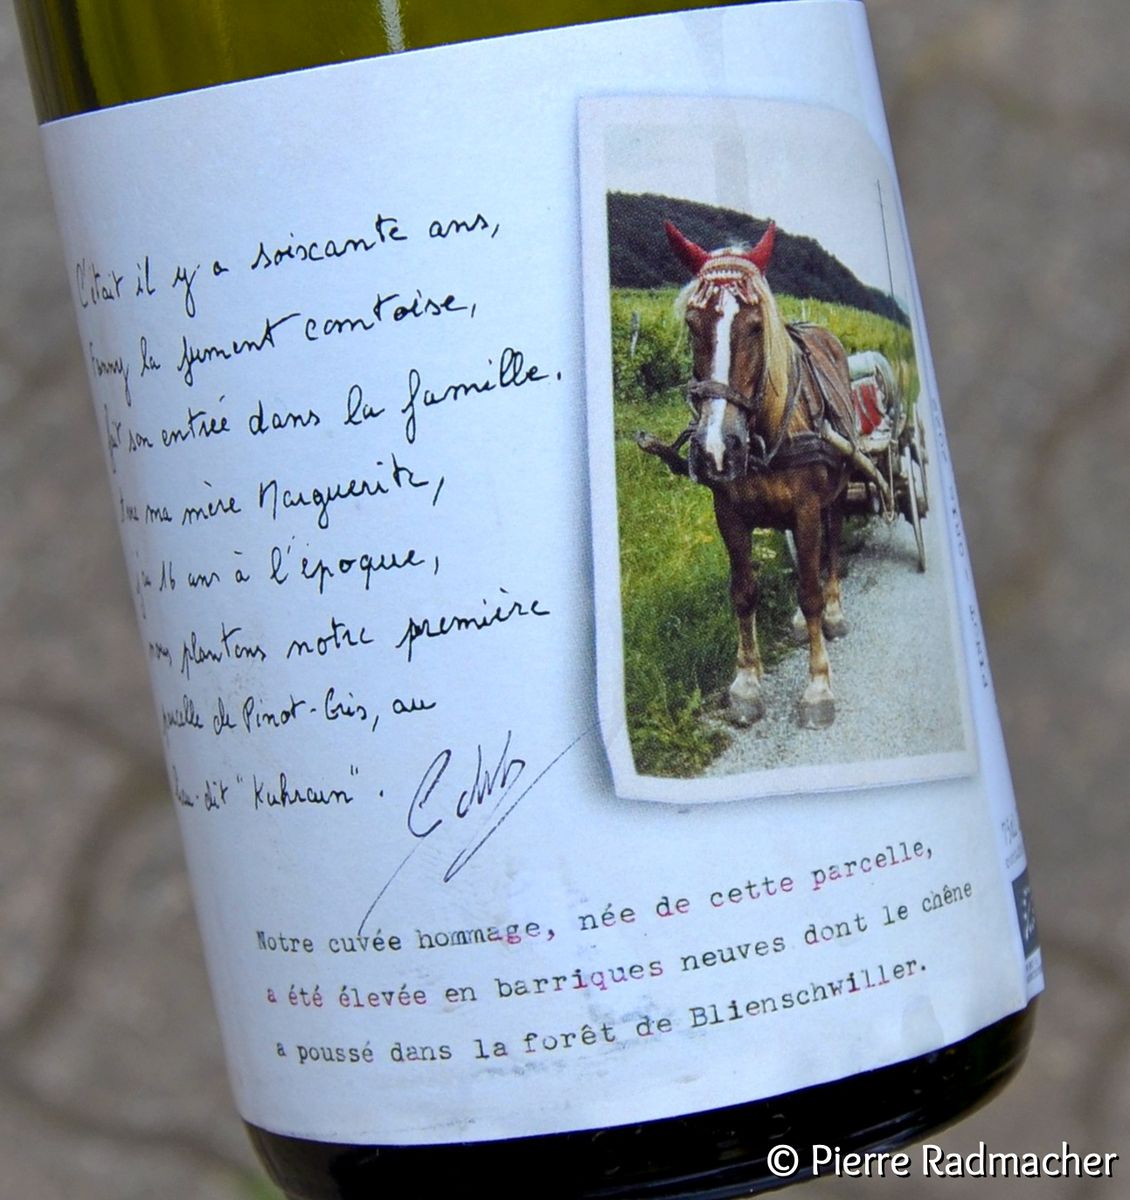 C'était il y a soixante ans,
Fanny la jument comtoise,
fait son entrée dans la famille.
ma mère Marguerite,
j'ai 16 ans à l'époque,
nous plantons notre première
parcelle de Pinot-Gris, au
lieu-dit "Kuhrain".
Notre cuvée hommage, née de cette parcelle,
a été élevée en barriques neuves dont le chêne
a poussé dans la forêt de Blienschwiller.
© Pierre Radmacher